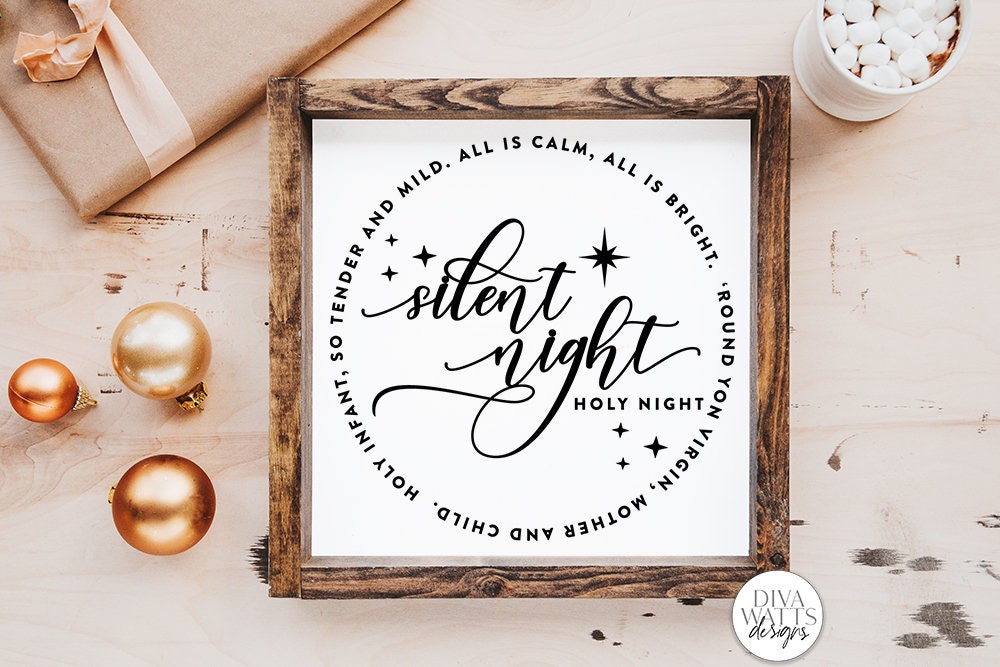 silent
night
HOLY NIGHT
ALL IS CALM, ALL IS BRIGHT. ‘ROUND YON VIRGIN, MOTHER AND CHILD. HOLY INFANT, SO TENDER AND MILD.
DIVA
WATTS
designs